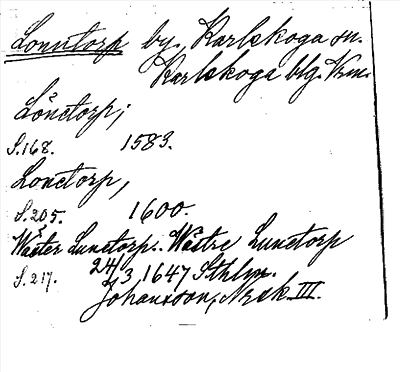 Lonntorp by, Karlskoga sn.
Karlskoga blg. Vrm.
Lönetorp;
S.168. 1583.
Lonetorp,
S.205. 1600.
Wäster Lunetorp. Wästre Lunetorp
S.217. 24/3 1647 Sthlm.
Johansson, Nrsk III.